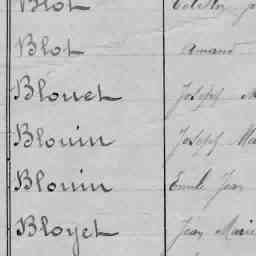 Blot
Blot Amand
Blouet Joseph
Blouin Joseph
Blouin Emile Jean
Bloyet Jean Marie